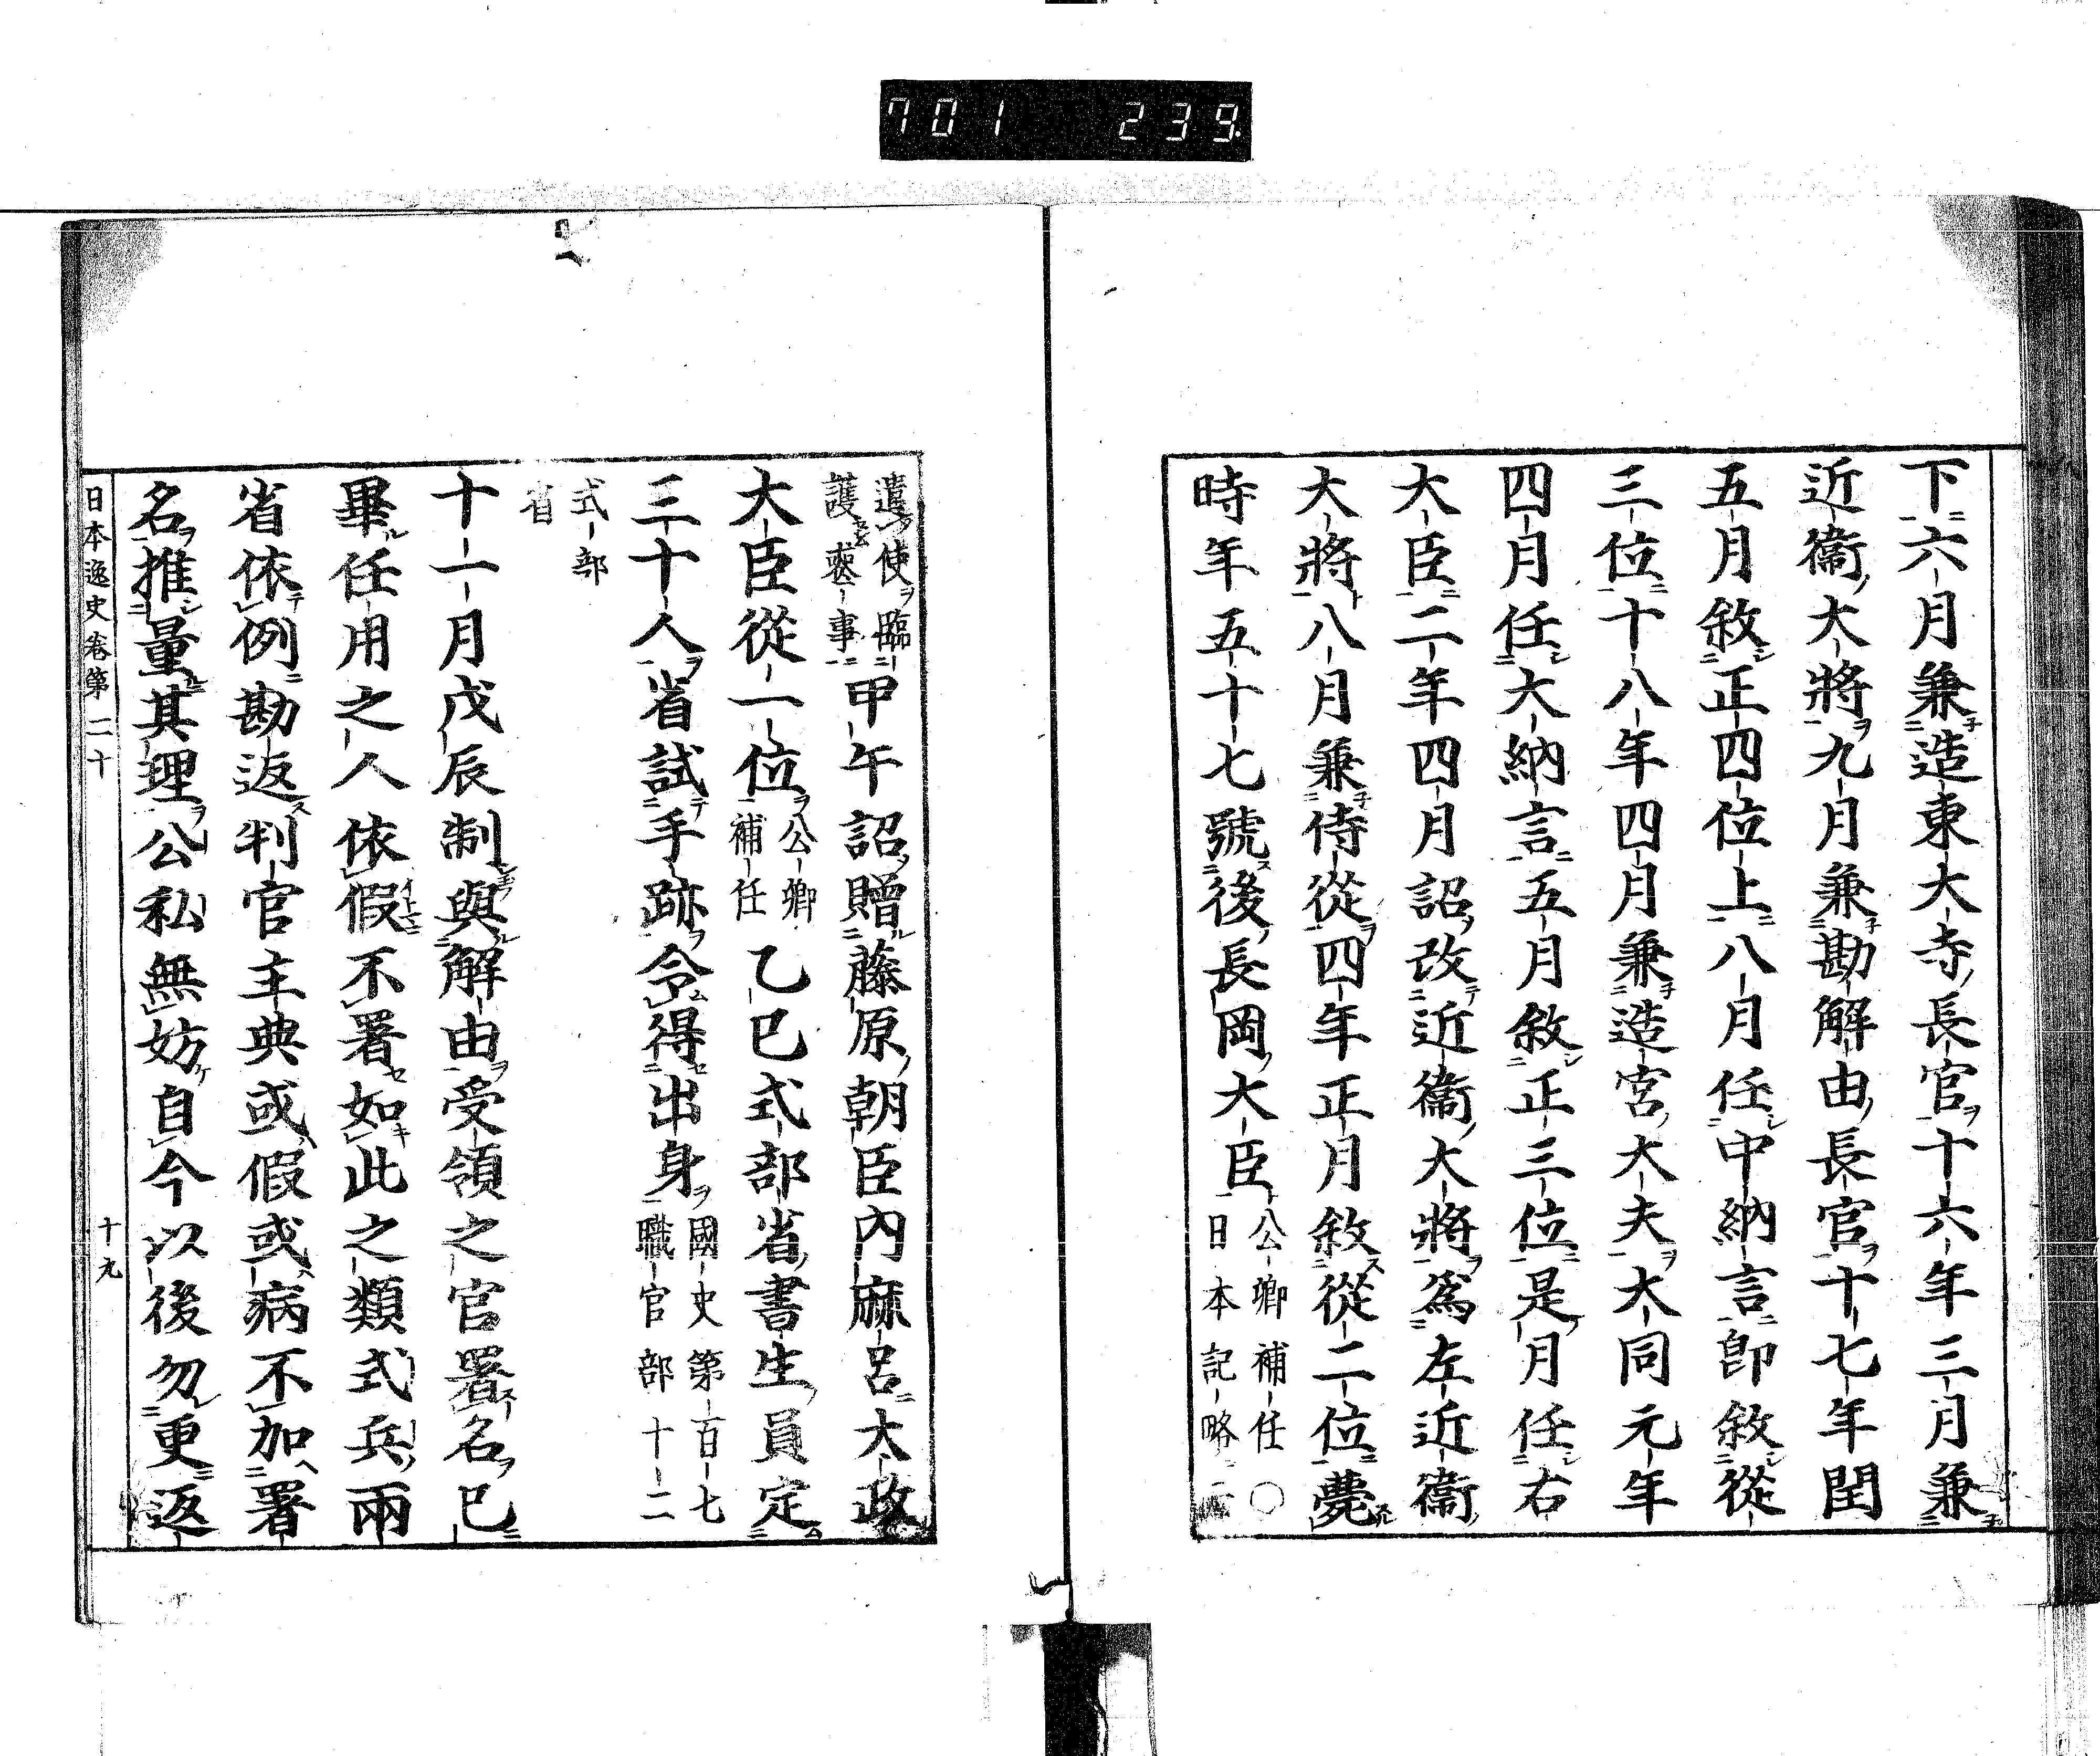 701 239
下六月兼造東大寺長官十六年三月兼
近衞大將九月兼勘解由長官十七年閏
五月敘正四位上八月任中納言卽敘從
三位十八年四月兼造宮大夫大同元年
四月任大納言五月敘正三位是月任右
大臣二年四月詔改近衞大將爲左近衞
大將八月兼侍從四年正月敘從二位薨
時年五十七號後長岡大臣
公卿補任〇
日本記略
遣使臨
護喪事
甲午詔贈藤原朝臣內麻呂太政
大臣從一位
公卿
補任
乙巳式部省書生員定
三十人省試手跡令得出身
國史第一百七
職官部十二
式部
省
十一月戊辰制與解由受領之官署名已
畢任用之人依假不署如此之類式兵兩
省依例勘返判官主典或假或病不加署
名推量其理公私無妨自今以後勿更返
日本逸史卷第二十
十九